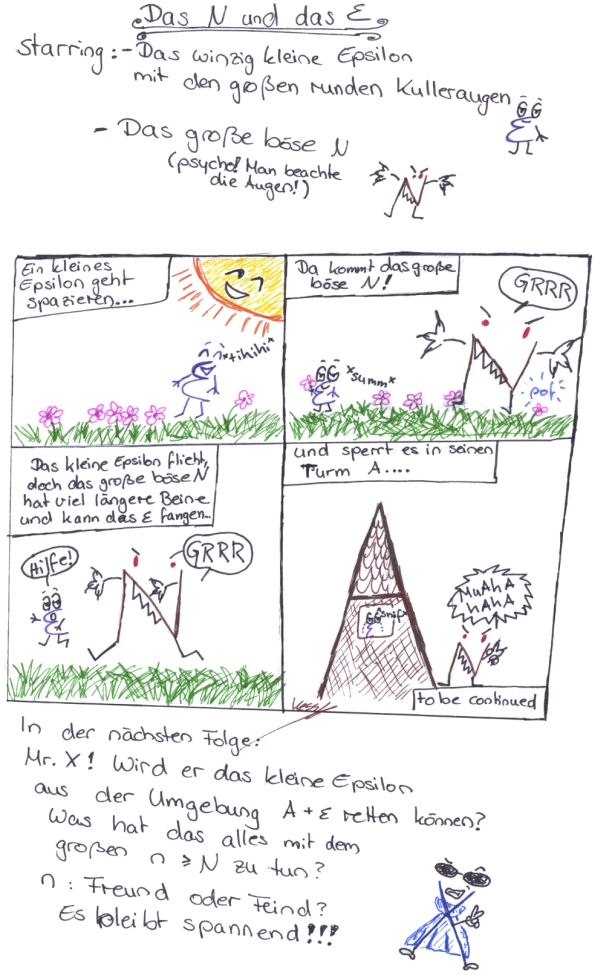 Das N und das ε
Starring: - Das winzig kleine Epsilon
mit den großen runden Kulleraugen
- Das große böse N
(psycho! Man beachte
die Augen!)
Ein kleines
Epsilon geht
spazieren...
*tihihi*
Da kommt das große
böse N!
GRRR
*summ*
pof.
Das kleine Epsilon flieht,
doch das große böse N
hat viel längere Beine
und kann das ε fangen...
Hilfe!
GRRR
und sperrt es in seinen
Turm A....
*snif*
MuAhA
hAhA
to be continued
In der nächsten Folge:
Mr. X! Wird er das kleine Epsilon
aus der Umgebung A + ε retten können?
Was hat das alles mit dem
großen n ≥ N zu tun?
n: Freund oder Feind?
Es bleibt spannend!!!